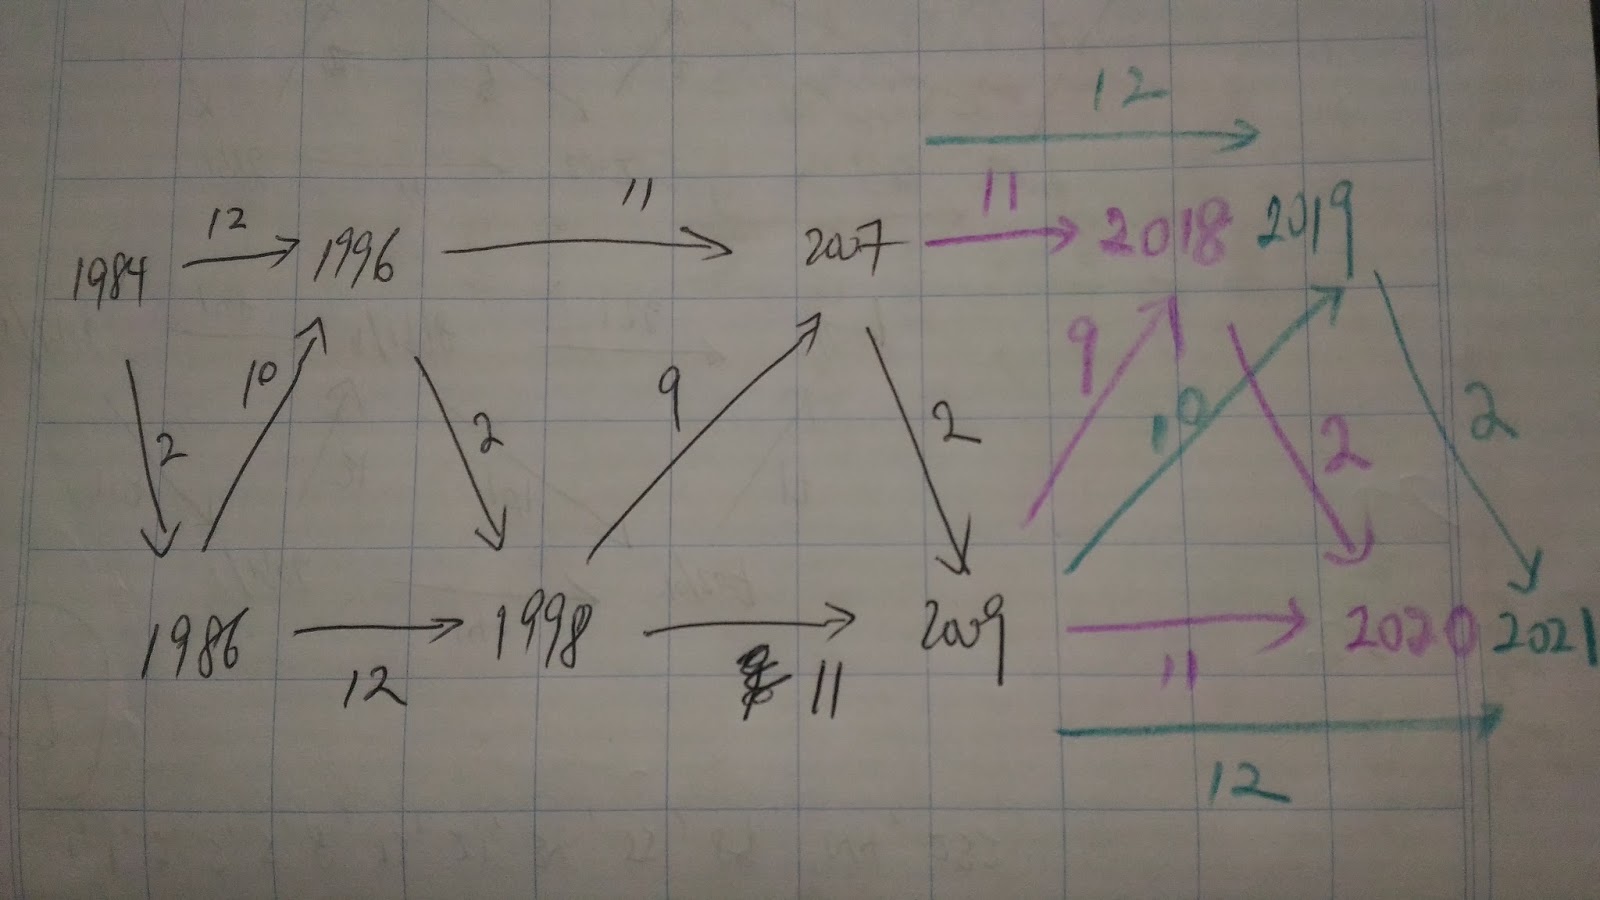 12
12 11 11
1984 1996 2007 2018 2019
2 10 2 9 2 9 10 2 2
1986 1998 2009 2020 2021
12 11 11
12